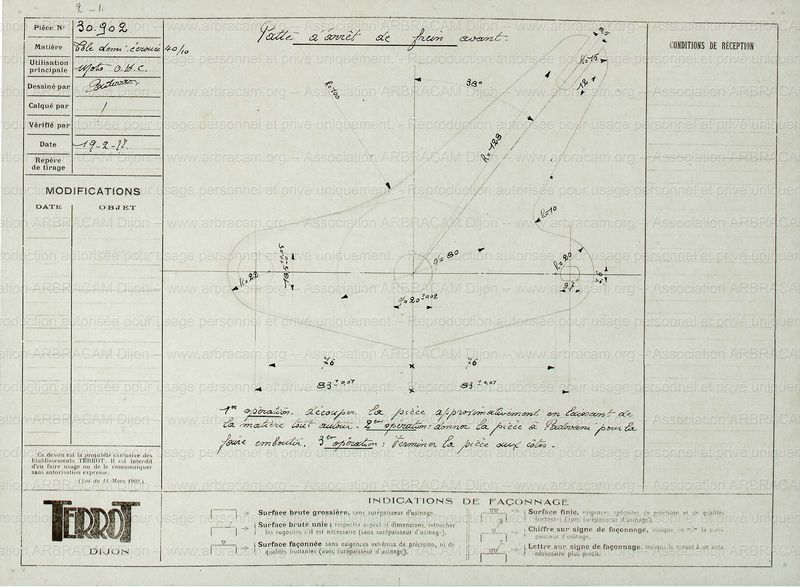 Pièce N° 30.902
Matière Tôle demi-écrouie 40/10
Utilisation principale Moto
Dessiné par Padovani
Calqué par
Vérifié par
Date 19-2-
Repère de tirage
MODIFICATIONS
DATE OBJET
Patte d'arrêt de frein avant.
CONDITIONS DE RÉCEPTION
38°
R=100
R=15
12
R=123
R=10
R=20
R=22
ø=80
76
76
83 ± 0,07
83 ± 0,07
1ère opération. Découper la pièce approximativement en laissant de
la matière tout autour. 2ème opération: donner la pièce à Padovani pour la
faire emboutir. 3ème opération: Terminer la pièce aux côtes.
Ce dessin est la propriété exclusive des
Etablissements TERROT. Il est interdit
d'en faire usage ou de le communiquer
sans autorisation expresse.
(Loi du 11 Mars 1902.)
TERROT
DIJON
INDICATIONS DE FAÇONNAGE
Surface brute grossière, sans surépaisseur d'usinage.
Surface brute unie; respecter aspect et dimensions, retoucher
les rugosités s'il est nécessaire (sans surépaisseur d'usinage).
Surface façonnée sans exigences extrêmes de précision, ni de
qualités flattantes (avec surépaisseur d'usinage).
Surface finie, exigences spéciales de précision et de qualités
flattantes (avec surépaisseur d'usinage).
Chiffre sur signe de façonnage, indique la
paisseur d'usinage.
Lettre sur signe de façonnage, indique le renvoi à une note
nécessaire plus précis.
www.arbracam.org – Association ARBRACAM Dijon – Reproduction autorisée pour usage personnel et privé uniquement.